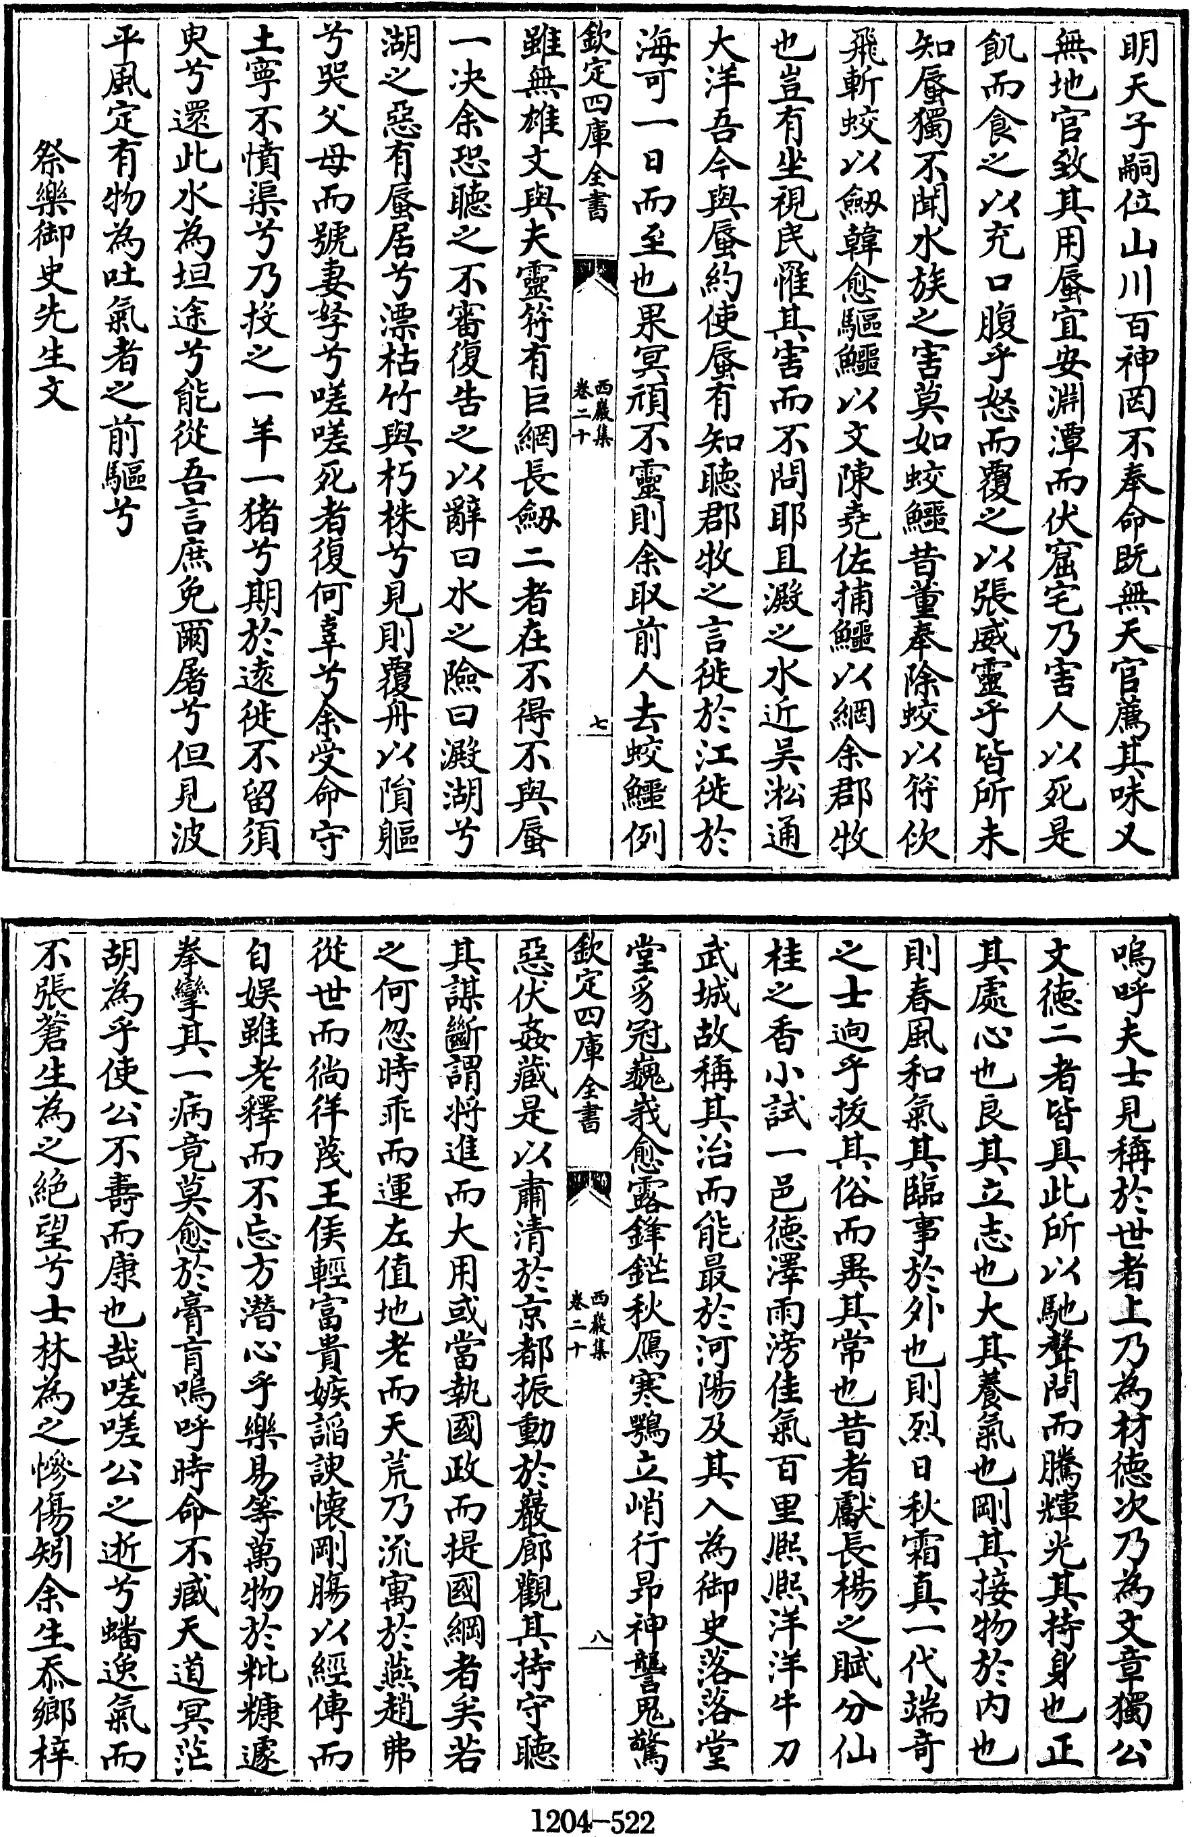 明天子嗣位山川百神罔不奉命既無天官薦其味又
無地官致其用蜃宜安淵潭而伏窟宅乃害人以死是
飢而食之以充口腹乎怒而覆之以張威靈乎皆所未
知蜃獨不聞水族之害莫如蛟鱷昔董奉除蛟以符佽
飛斬蛟以劔韓愈驅鱷以文陳堯佐捕鱷以網余郡牧
也豈有坐視民罹其害而不問耶且澱之水近吴淞通
大洋吾今與蜃約使蜃有知聴郡牧之言徙於江徙於
海可一日而至也果冥頑不靈則余取前人去蛟鱷例
欽定四庫全書
西巖集
卷二十
七
雖無雄文與夫靈符有巨網長劔二者在不得不與蜃
一决余恐聴之不審復告之以辭曰水之險曰澱湖兮
湖之惡有蜃居兮漂枯竹與朽株兮見則覆舟以隕軀
兮哭父母而號妻孥兮嗟嗟死者復何辜兮余受命守
土寧不憤渠兮乃投之一羊一猪兮期於逺徙不留須
臾兮還此水為坦途兮能從吾言庶免爾屠兮但見波
平風定有物為吐氣者之前驅兮
祭樂御史先生文
嗚呼夫士見稱於世者上乃為材徳次乃為文章獨公
文徳二者皆具此所以馳聲問而騰輝光其持身也正
其處心也良其立志也大其養氣也剛其接物於内也
則春風和氣其臨事於外也則烈日秋霜真一代端竒
之士逈乎拔其俗而異其常也昔者獻長楊之賦分仙
桂之香小試一邑徳澤雨滂佳氣百里熈熈洋洋牛刀
武城故稱其治而能最於河陽及其入為御史落落堂
堂豸冠巍峩愈露鋒鋩秋鴈寒鶚立峭行昂神讋鬼驚
欽定四庫全書
西巖集
卷二十
八
惡伏姦藏是以肅清於京都振動於巖廊觀其持守聴
其謀斷謂将進而大用或當執國政而提國綱者矣若
之何忽時乖而運左值地老而天荒乃流寓於燕趙弗
從世而徜徉蔑王侯輕富貴嫉謟諛懐剛腸以經傳而
自娱雖老釋而不忘方潜心乎樂易等萬物於粃糠遽
拳攣其一病竟莫愈於膏肓嗚呼時命不臧天道冥茫
胡為乎使公不壽而康也哉嗟嗟公之逝兮蟠逸氣而
不張蒼生為之絶望兮士林為之惨傷矧余生忝鄉梓
1204-522